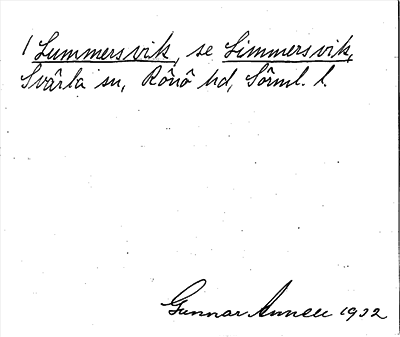 1 Lummersvik, se Limmersvik,
Svärta sn, Rönö hd, Sörml. l.
Gunnar Annell 1932